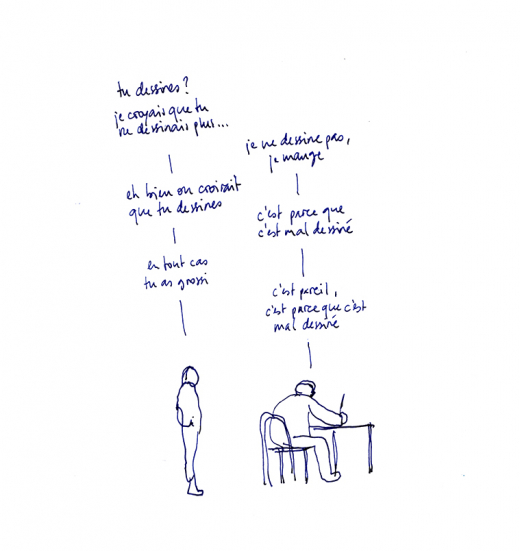 tu dessines?
je croyais que tu
ne dessinais plus...
je ne dessine pas,
je mange
eh bien on croirait
que tu dessines
c'est parce que
c'est mal dessiné
en tout cas
tu as grossi
c'est pareil,
c'est parce que c'est
mal dessiné